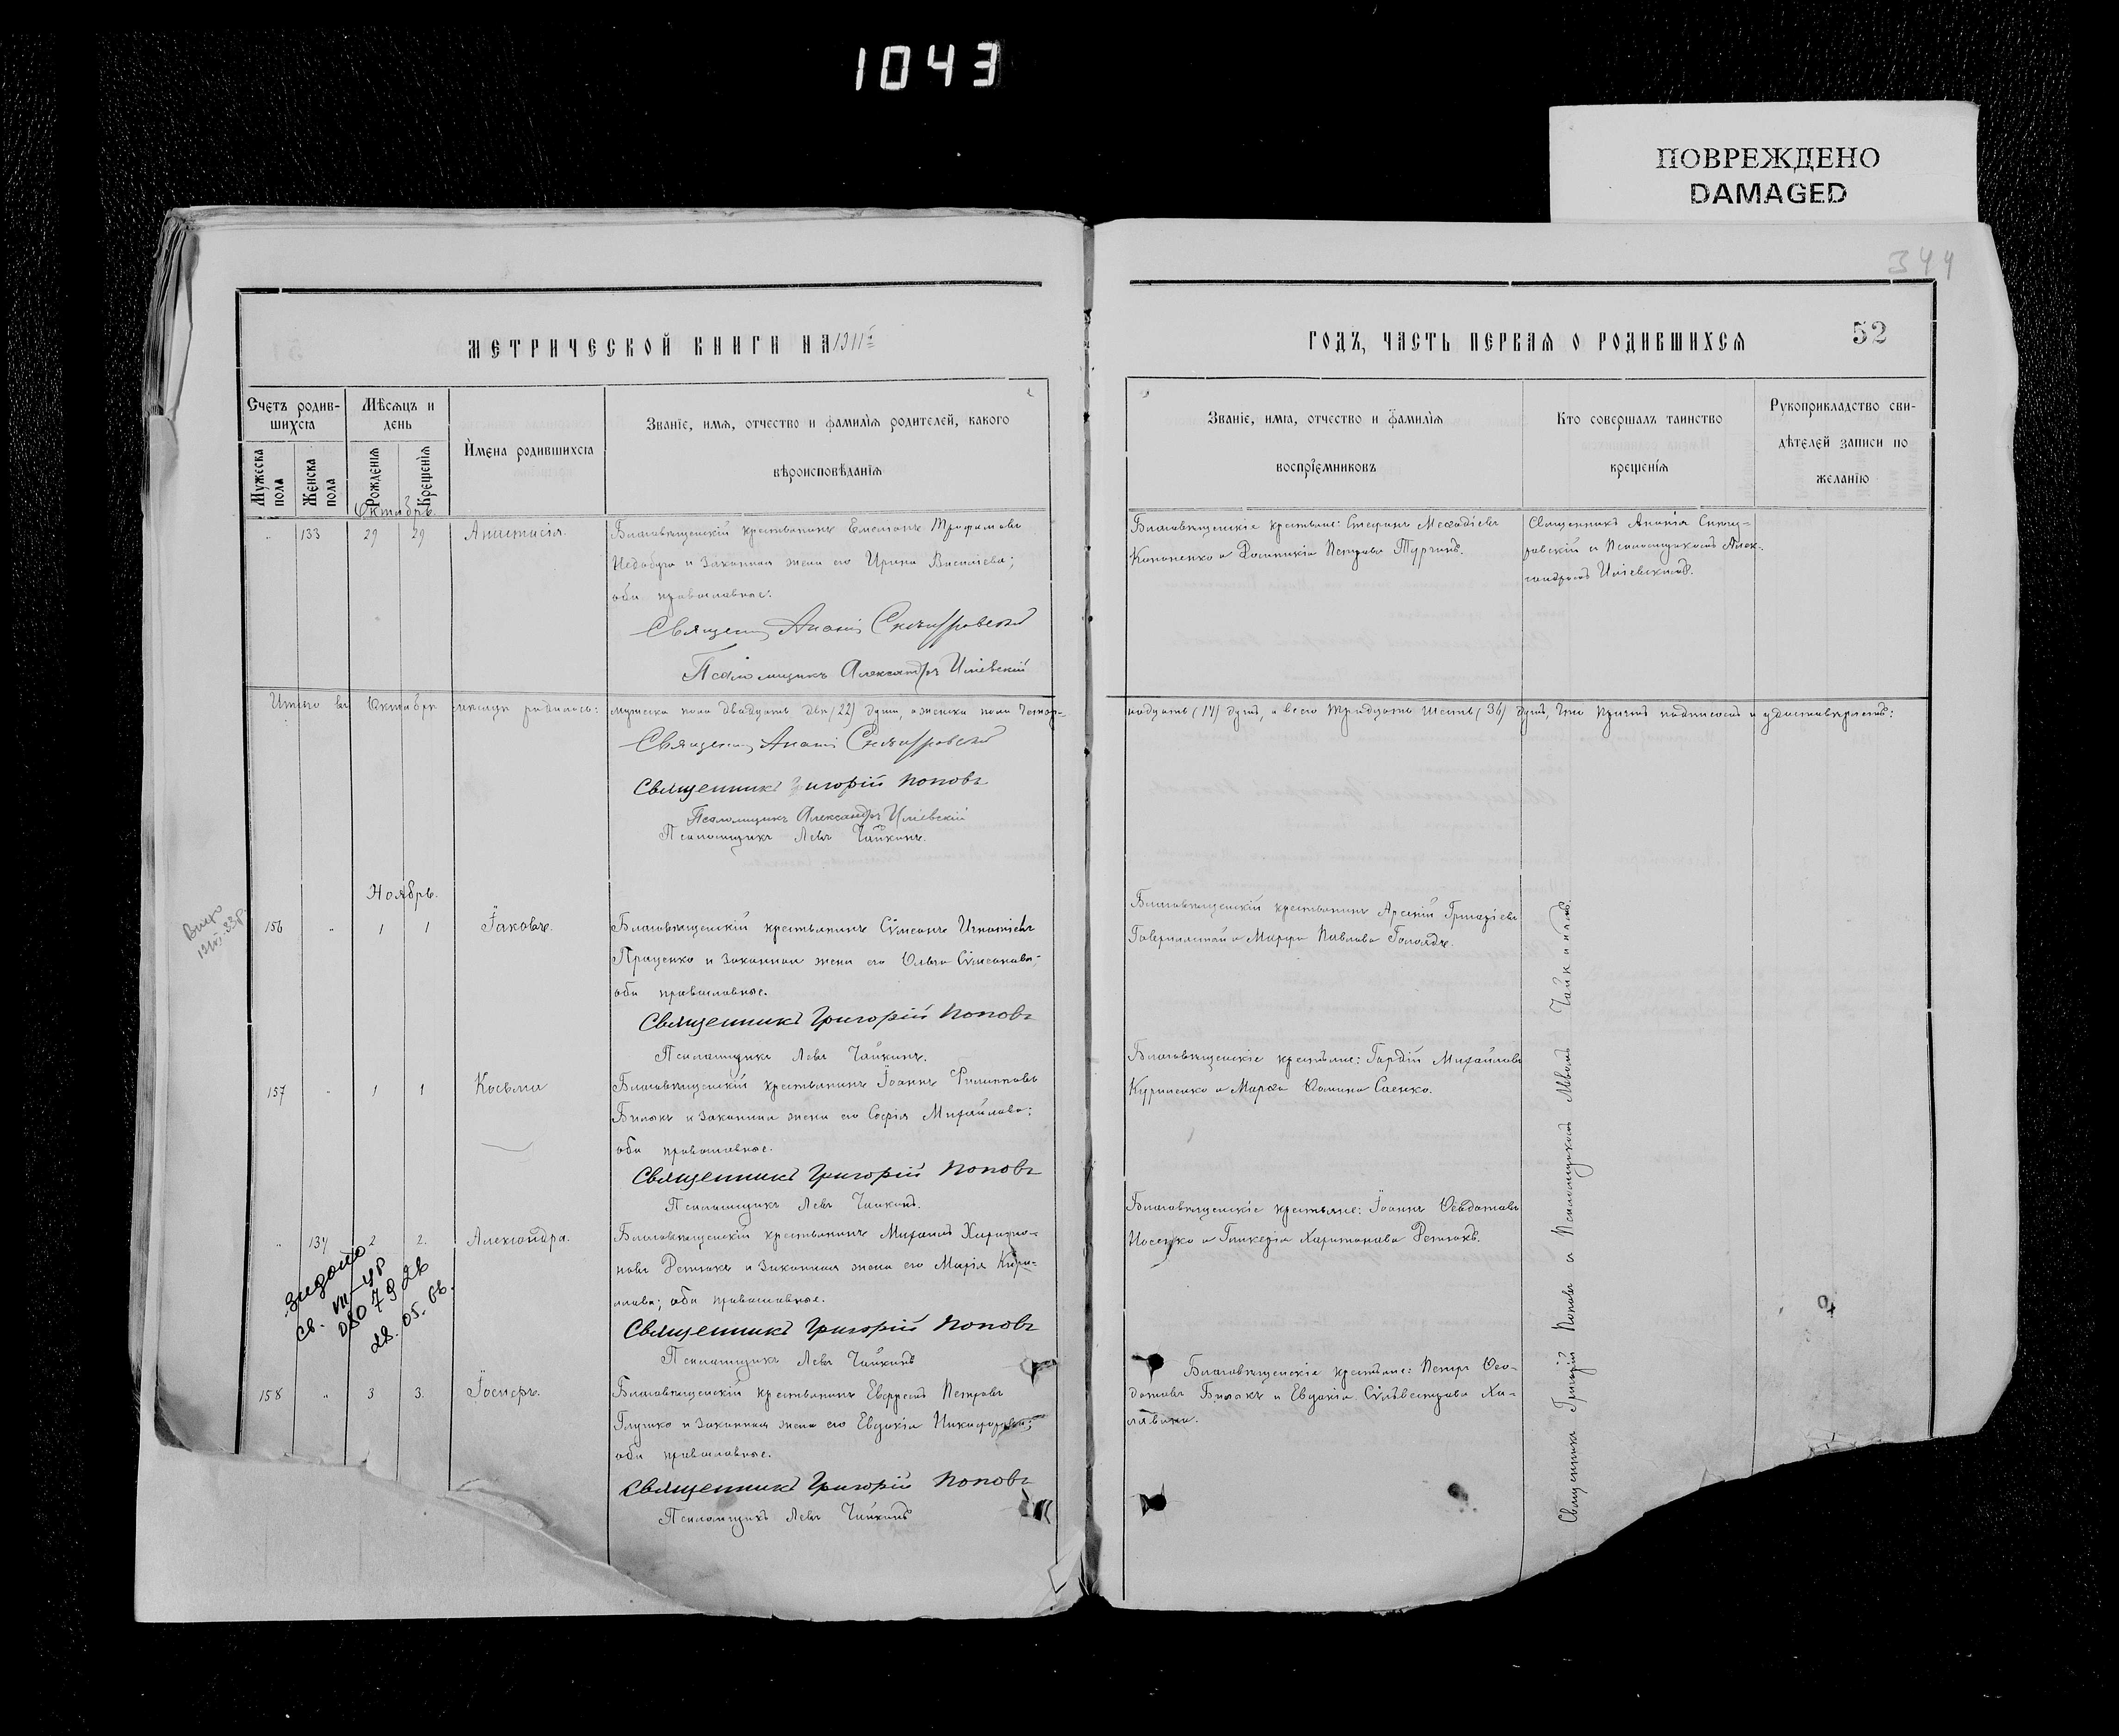 1043
ПОВРЕЖДЕНО
DAMAGED
344
МЕТРИЧЕСКОЙ КНИГИ НА 1911й
ГОДЪ, ЧАСТЬ ПЕРВАЯ О РОДИВШИХСЯ
52
Счетъ родив-
шихся
Мужеска пола
Женска пола
Мѣсяцъ и
день
Рожденія
Крещенія
Имена родившихся
Званіе, имя, отчество и фамилія родителей, какого
вѣроисповѣданія
Званіе, имя, отчество и фамилія
воспріемниковъ
Кто совершалъ таинство
крещенія
Рукоприкладство сви-
дѣтелей записи по
желанію
Октябрь.
" 133 29 29 Анастасія.
Благовѣщенскій крестьянинъ Емеліанъ Трофимовъ
и законная жена его Ирина Василіева;
оба православные.
Священникъ Ананія
Псаломщикъ Александръ Иліевскій
Благовѣщенскіе крестьяне: Стефанъ Меѳодіевъ
Кононенко и Петрова
Священникъ Ананія
и Псаломщикомъ Алек-
сандромъ Иліевскимъ.
Итого въ Октябрѣ мѣсяцѣ родилось: мужеска пола двадцать два (22) души, а женска пола четыр-
надцать (14) душъ, а всего тридцать шесть (36) душъ, что причтъ подписомъ и удостовѣряетъ:
Священникъ Ананія
Священникъ Григорій Поповъ
Псаломщикъ Александръ Иліевскій
Псаломщикъ Левъ Чайкинъ.
Ноябрь.
156 " 1 1 Іаковъ.
Благовѣщенскій крестьянинъ Сѵмеонъ Игнатіевъ
Проценко и законная жена его Ольга Сѵмеонова;
оба православные.
Священникъ Григорій Поповъ
Псаломщикъ Левъ Чайкинъ.
Благовѣщенскій крестьянинъ Арсеній
и Марфа Павлова
157 " 1 1 Косьма
Благовѣщенскій крестьянинъ Іоаннъ Филипповъ
Билякъ и законная жена его Софія Михайлова;
оба православные.
Священникъ Григорій Поповъ
Псаломщикъ Левъ Чайкинъ.
Благовѣщенскіе крестьяне: Гордій Михайловъ
Куриленко и Марѳа Ѳомина Саенко.
" 134 2 2. Александра.
Благовѣщенскій крестьянинъ Михаилъ Харито-
новъ и законная жена его Марія Кири-
лова; оба православные.
Священникъ Григорій Поповъ
Псаломщикъ Левъ Чайкинъ
Благовѣщенскіе крестьяне: Іоаннъ Ѳеодотовъ
Носенко и Гликерія Харитонова
28.05.
158 " 3 3. Іосифъ.
Благовѣщенскій крестьянинъ Петровъ
Глушко и законная жена его Евдокія Никифорова;
оба православные.
Священникъ Григорій Поповъ
Псаломщикъ Левъ Чайкинъ
Благовѣщенскіе крестьяне: Петръ Ѳео-
дотовъ Билякъ и Евдокія Сѵльвестрова
Священникъ Григорій Поповъ и Псаломщикомъ Львомъ Чайкинымъ.